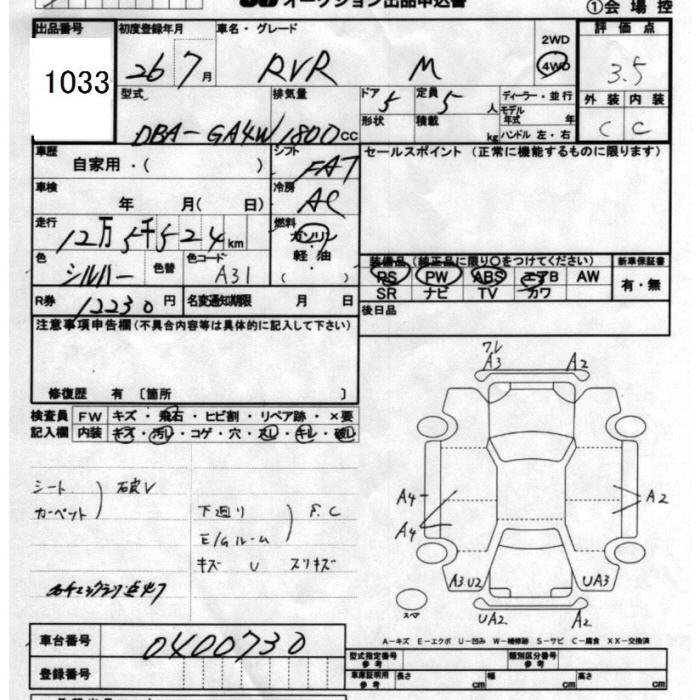 オークション出品申込書
①会場控
出品番号 初度登録年月 車名・グレード 評価点
1033 26 7月 RVR M 2WD 4WD 3.5
型式 排気量 ドア 定員 ディーラー・並行 外装 内装
DBA-GA4W 1800cc 5 5人 モデル年式 年 C C
形状 積載 kg ハンドル 左・右
車歴 シフト セールスポイント (正常に機能するものに限ります)
自家用・( ) FAT
車検 冷房
年 月( 日) AC
走行 燃料
12万5千524km ガソリン
軽・油
( )
色 色替 色コード 装備品(純正品に限り○をつけてください) 新車保証書
シルバー A31 PS PW ABS エアB AW 有・無
SR ナビ TV カワ
R券 12230円 名変通知期限 月 日 後日品
注意事項申告欄(不具合内容等は具体的に記入して下さい)
修復歴 有 〔箇所 〕
検査員 FW キズ・飛石・ヒビ割・リペア跡・×要
記入欄 内装 キズ・汚レ・コゲ・穴・スレ・キレ・破レ
シート
カーペット
下廻り
E/Gルーム
キズ U スリキズ
ワレ
A3 A2
A4 A2
A4
A3U2 UA3
スペア
UA2 A2
A-キズ E-エクボ U-凹み W-補修跡 S-サビ C-腐食 XX-交換済
車台番号 0400730
登録番号
型式指定番号 参考 類別区分番号 参考
車庫証明用 参考 長さ cm 幅 cm 高さ cm